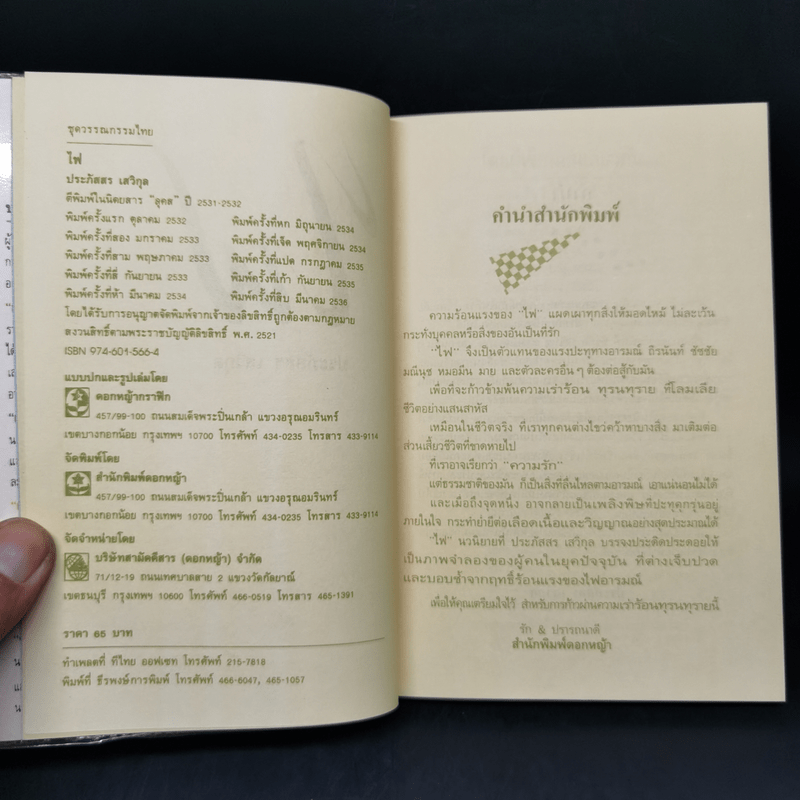 ชุดวรรณกรรมไทย
ไฟ
ประภัสสร เสวิกุล
ตีพิมพ์ในนิตยสาร "ลุคส์" ปี 2531-2532
พิมพ์ครั้งแรก ตุลาคม 2532
พิมพ์ครั้งที่สอง มกราคม 2533
พิมพ์ครั้งที่สาม พฤษภาคม 2533
พิมพ์ครั้งที่สี่ กันยายน 2533
พิมพ์ครั้งที่ห้า มีนาคม 2534
พิมพ์ครั้งที่หก มิถุนายน 2534
พิมพ์ครั้งที่เจ็ด พฤศจิกายน 2534
พิมพ์ครั้งที่แปด กรกฎาคม 2535
พิมพ์ครั้งที่เก้า กันยายน 2535
พิมพ์ครั้งที่สิบ มีนาคม 2536
โดยได้รับการอนุญาตจัดพิมพ์จากเจ้าของลิขสิทธิ์ถูกต้องตามกฎหมาย
สงวนสิทธิ์ตามพระราชบัญญัติลิขสิทธิ์ พ.ศ. 2521
ISBN 974-601-566-4
แบบปกและรูปเล่มโดย
ดอกหญ้ากราฟิก
457/99-100 ถนนสมเด็จพระปิ่นเกล้า แขวงอรุณอมรินทร์
เขตบางกอกน้อย กรุงเทพฯ 10700 โทรศัพท์ 434-0235 โทรสาร 433-9114
จัดพิมพ์โดย
สำนักพิมพ์ดอกหญ้า
457/99-100 ถนนสมเด็จพระปิ่นเกล้า แขวงอรุณอมรินทร์
เขตบางกอกน้อย กรุงเทพฯ 10700 โทรศัพท์ 434-0235 โทรสาร 433-9114
จัดจำหน่ายโดย
บริษัทสามัคคีสาร (ดอกหญ้า) จำกัด
71/12-19 ถนนเทศบาลสาย 2 แขวงวัดกัลยาณ์
เขตธนบุรี กรุงเทพฯ 10600 โทรศัพท์ 466-0519 โทรสาร 465-1391
ราคา 65 บาท
ทำเพลตที่ ทีไทย ออฟเซท โทรศัพท์ 215-7818
พิมพ์ที่ ธีรพงษ์การพิมพ์ โทรศัพท์ 466-6047, 465-1057
คำนำสำนักพิมพ์
ความร้อนแรงของ "ไฟ" แผดเผาทุกสิ่งให้มอดไหม้ ไม่ละเว้น
กระทั่งบุคคลหรือสิ่งของอันเป็นที่รัก
"ไฟ" จึงเป็นตัวแทนของแรงปะทุทางอารมณ์ ถิรนันท์ ชัชชัย
มณีนุช หมอมีน มาย และตัวละครอื่น ๆ ต้องต่อสู้กับมัน
เพื่อที่จะก้าวข้ามพ้นความเร่าร้อน ทุรนทุราย ที่โลมเลีย
ชีวิตอย่างแสนสาหัส
เหมือนในชีวิตจริง ที่เราทุกคนต่างไขว่คว้าหาบางสิ่ง มาเติมต่อ
ส่วนเสี้ยวชีวิตที่ขาดหายไป
ที่เราอาจเรียกว่า "ความรัก"
แต่ธรรมชาติของมัน ก็เป็นสิ่งที่ลื่นไหลตามอารมณ์ เอาแน่นอนไม่ได้
และเมื่อถึงจุดหนึ่ง อาจกลายเป็นเพลิงพิษที่ปะทุคุกรุ่นอยู่
ภายในใจ กระทำย่ำยีต่อเลือดเนื้อและวิญญาณอย่างสุดประมาณได้
"ไฟ" นวนิยายที่ ประภัสสร เสวิกุล บรรจงประดิดประดอยให้
เป็นภาพจำลองของผู้คนในยุคปัจจุบัน ที่ต่างเจ็บปวด
และบอบช้ำจากฤทธิ์ร้อนแรงของไฟอารมณ์
เพื่อให้คุณเตรียมใจไว้ สำหรับการก้าวผ่านความเร่าร้อนทุรนทุรายนี้
รัก & ปรารถนาดี
สำนักพิมพ์ดอกหญ้า